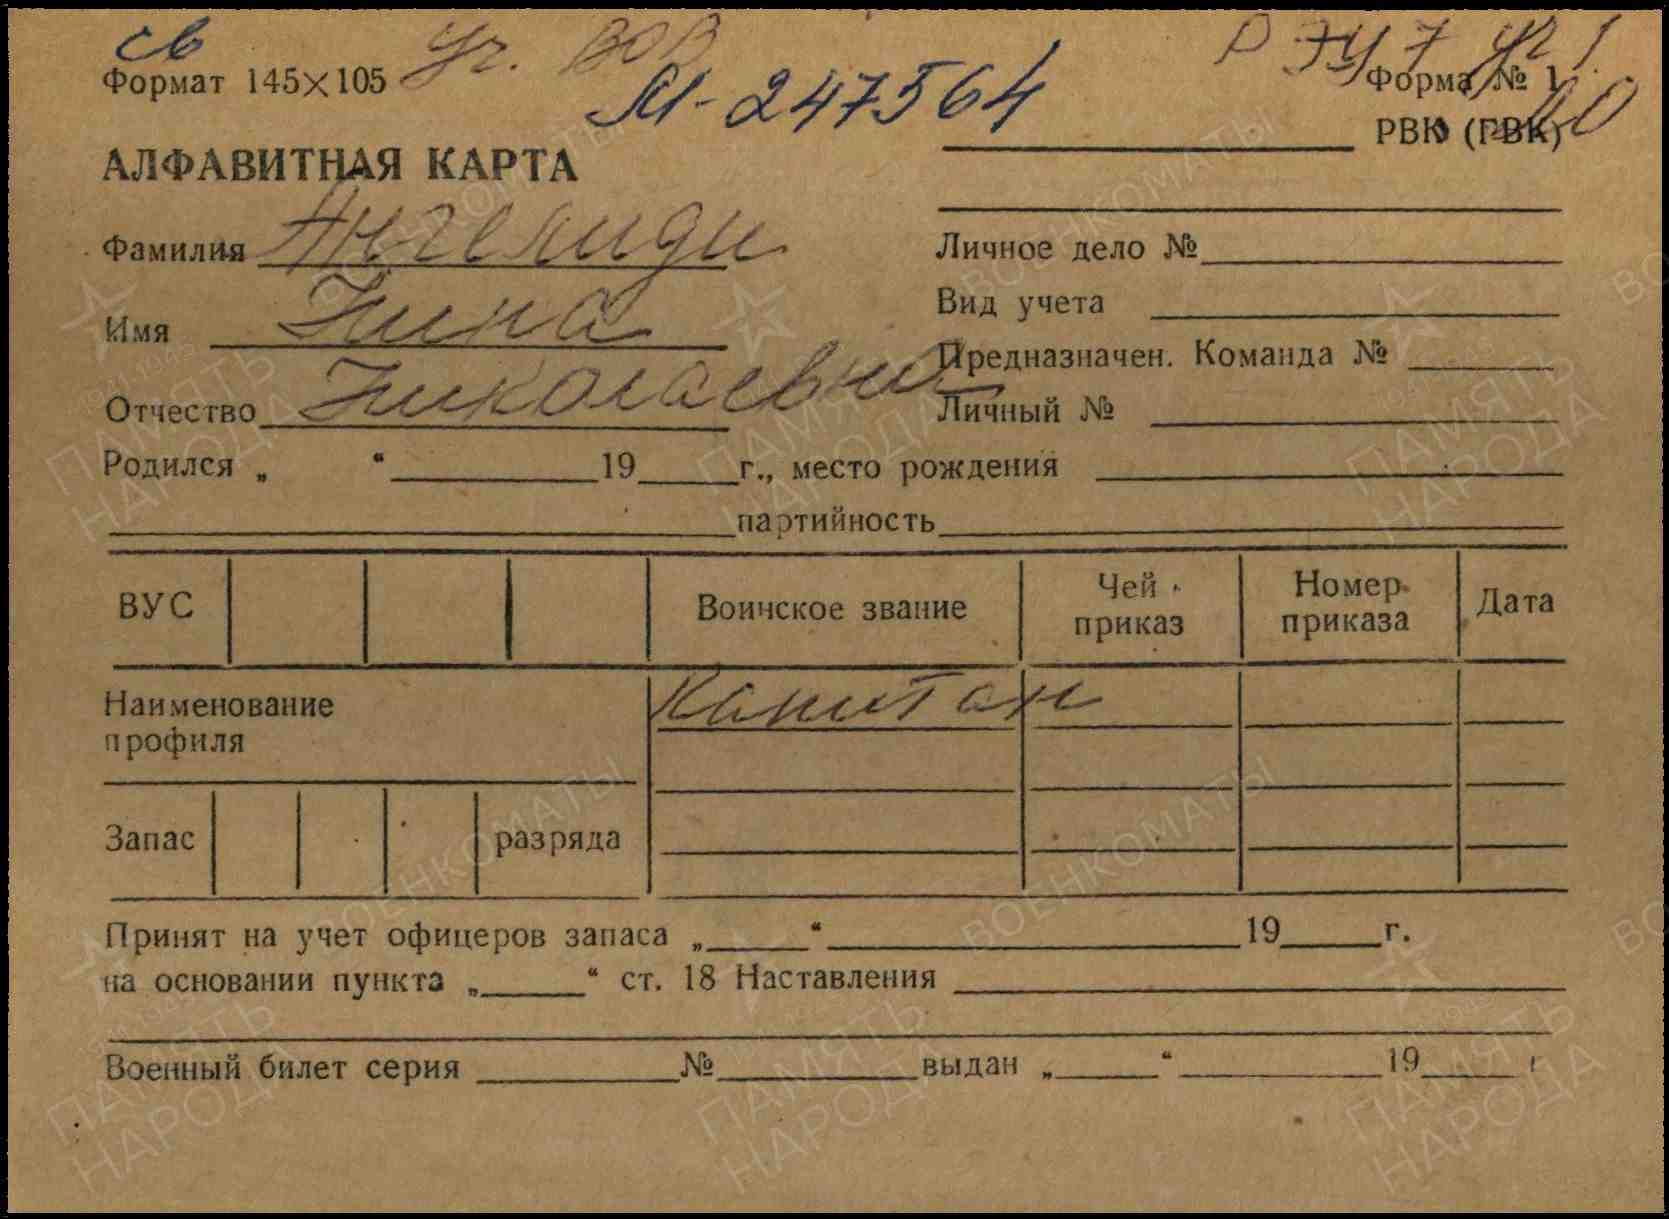 св уч. ВОВ
Формат 145×105
М-247564
Форма № 1
РВК (ГВК)
АЛФАВИТНАЯ КАРТА
Фамилия Ангелиди
Личное дело №
Вид учета
Имя Нина
Предназначен. Команда №
Отчество Николаевна
Личный №
Родился „ “ 19 г., место рождения
партийность
ВУС Воинское звание Чей приказ Номер приказа Дата
Наименование профиля
Капитан
Запас разряда
Принят на учет офицеров запаса „ “ 19 г.
на основании пункта „ “ ст. 18 Наставления
Военный билет серия № выдан „ “ 19 г
ПАМЯТЬ НАРОДА
ВОЕНКОМАТЫ